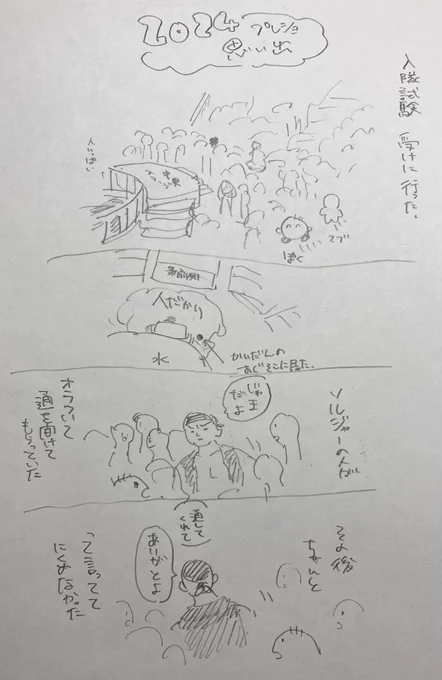 2024 プレジャ
思い出
入隊試験 受けに行った。
人いっぱい
中央
ステージ
デブ
ぼく
人だかり
水
かいだんの
あじそこに居た。
ソルジャーの人が
じゃま
だよ
オラついて
道を開けて
もらっていた
その後
ちゃんと
通して
くれて
ありがとよ
って言ってて
にくめなかった